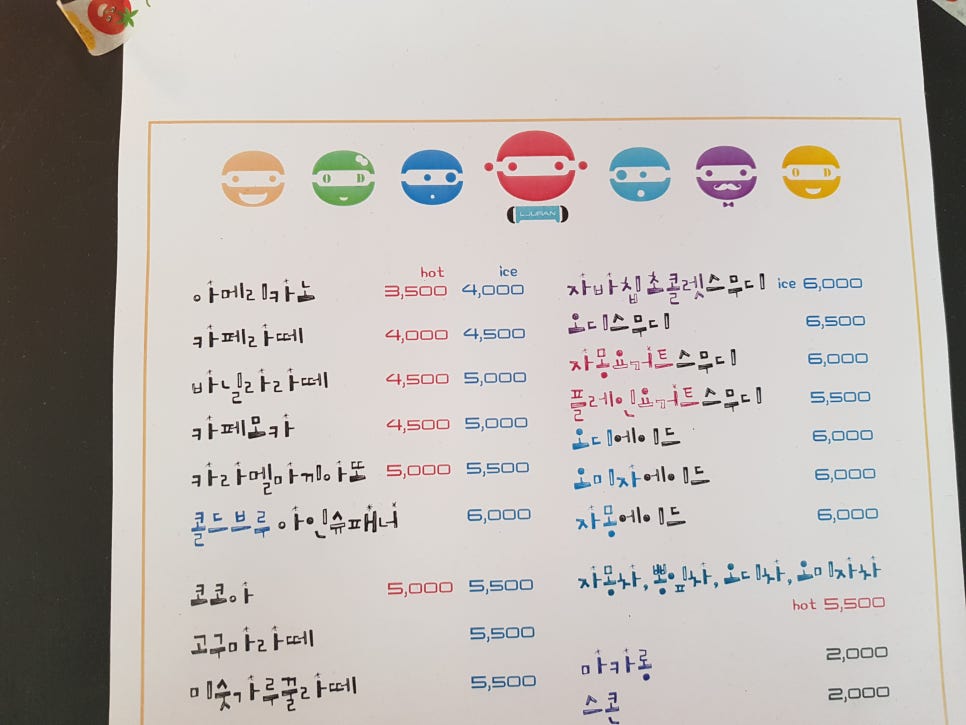 LJURAN
hot ice
아메리카노 3,500 4,000
카페라떼 4,000 4,500
바닐라라떼 4,500 5,000
카페모카 4,500 5,000
카라멜마끼아또 5,000 5,500
콜드브루 아인슈패너 6,000
코코아 5,000 5,500
고구마라떼 5,500
미숫가루꿀라떼 5,500
자바칩초콜렛스무디 ice 6,000
오디스무디 6,500
자몽요거트스무디 6,000
플레인요거트스무디 5,500
오디에이드 6,000
오미자에이드 6,000
자몽에이드 6,000
자몽차, 뽕잎차, 오디차, 오미자차
hot 5,500
마카롱 2,000
스콘 2,000